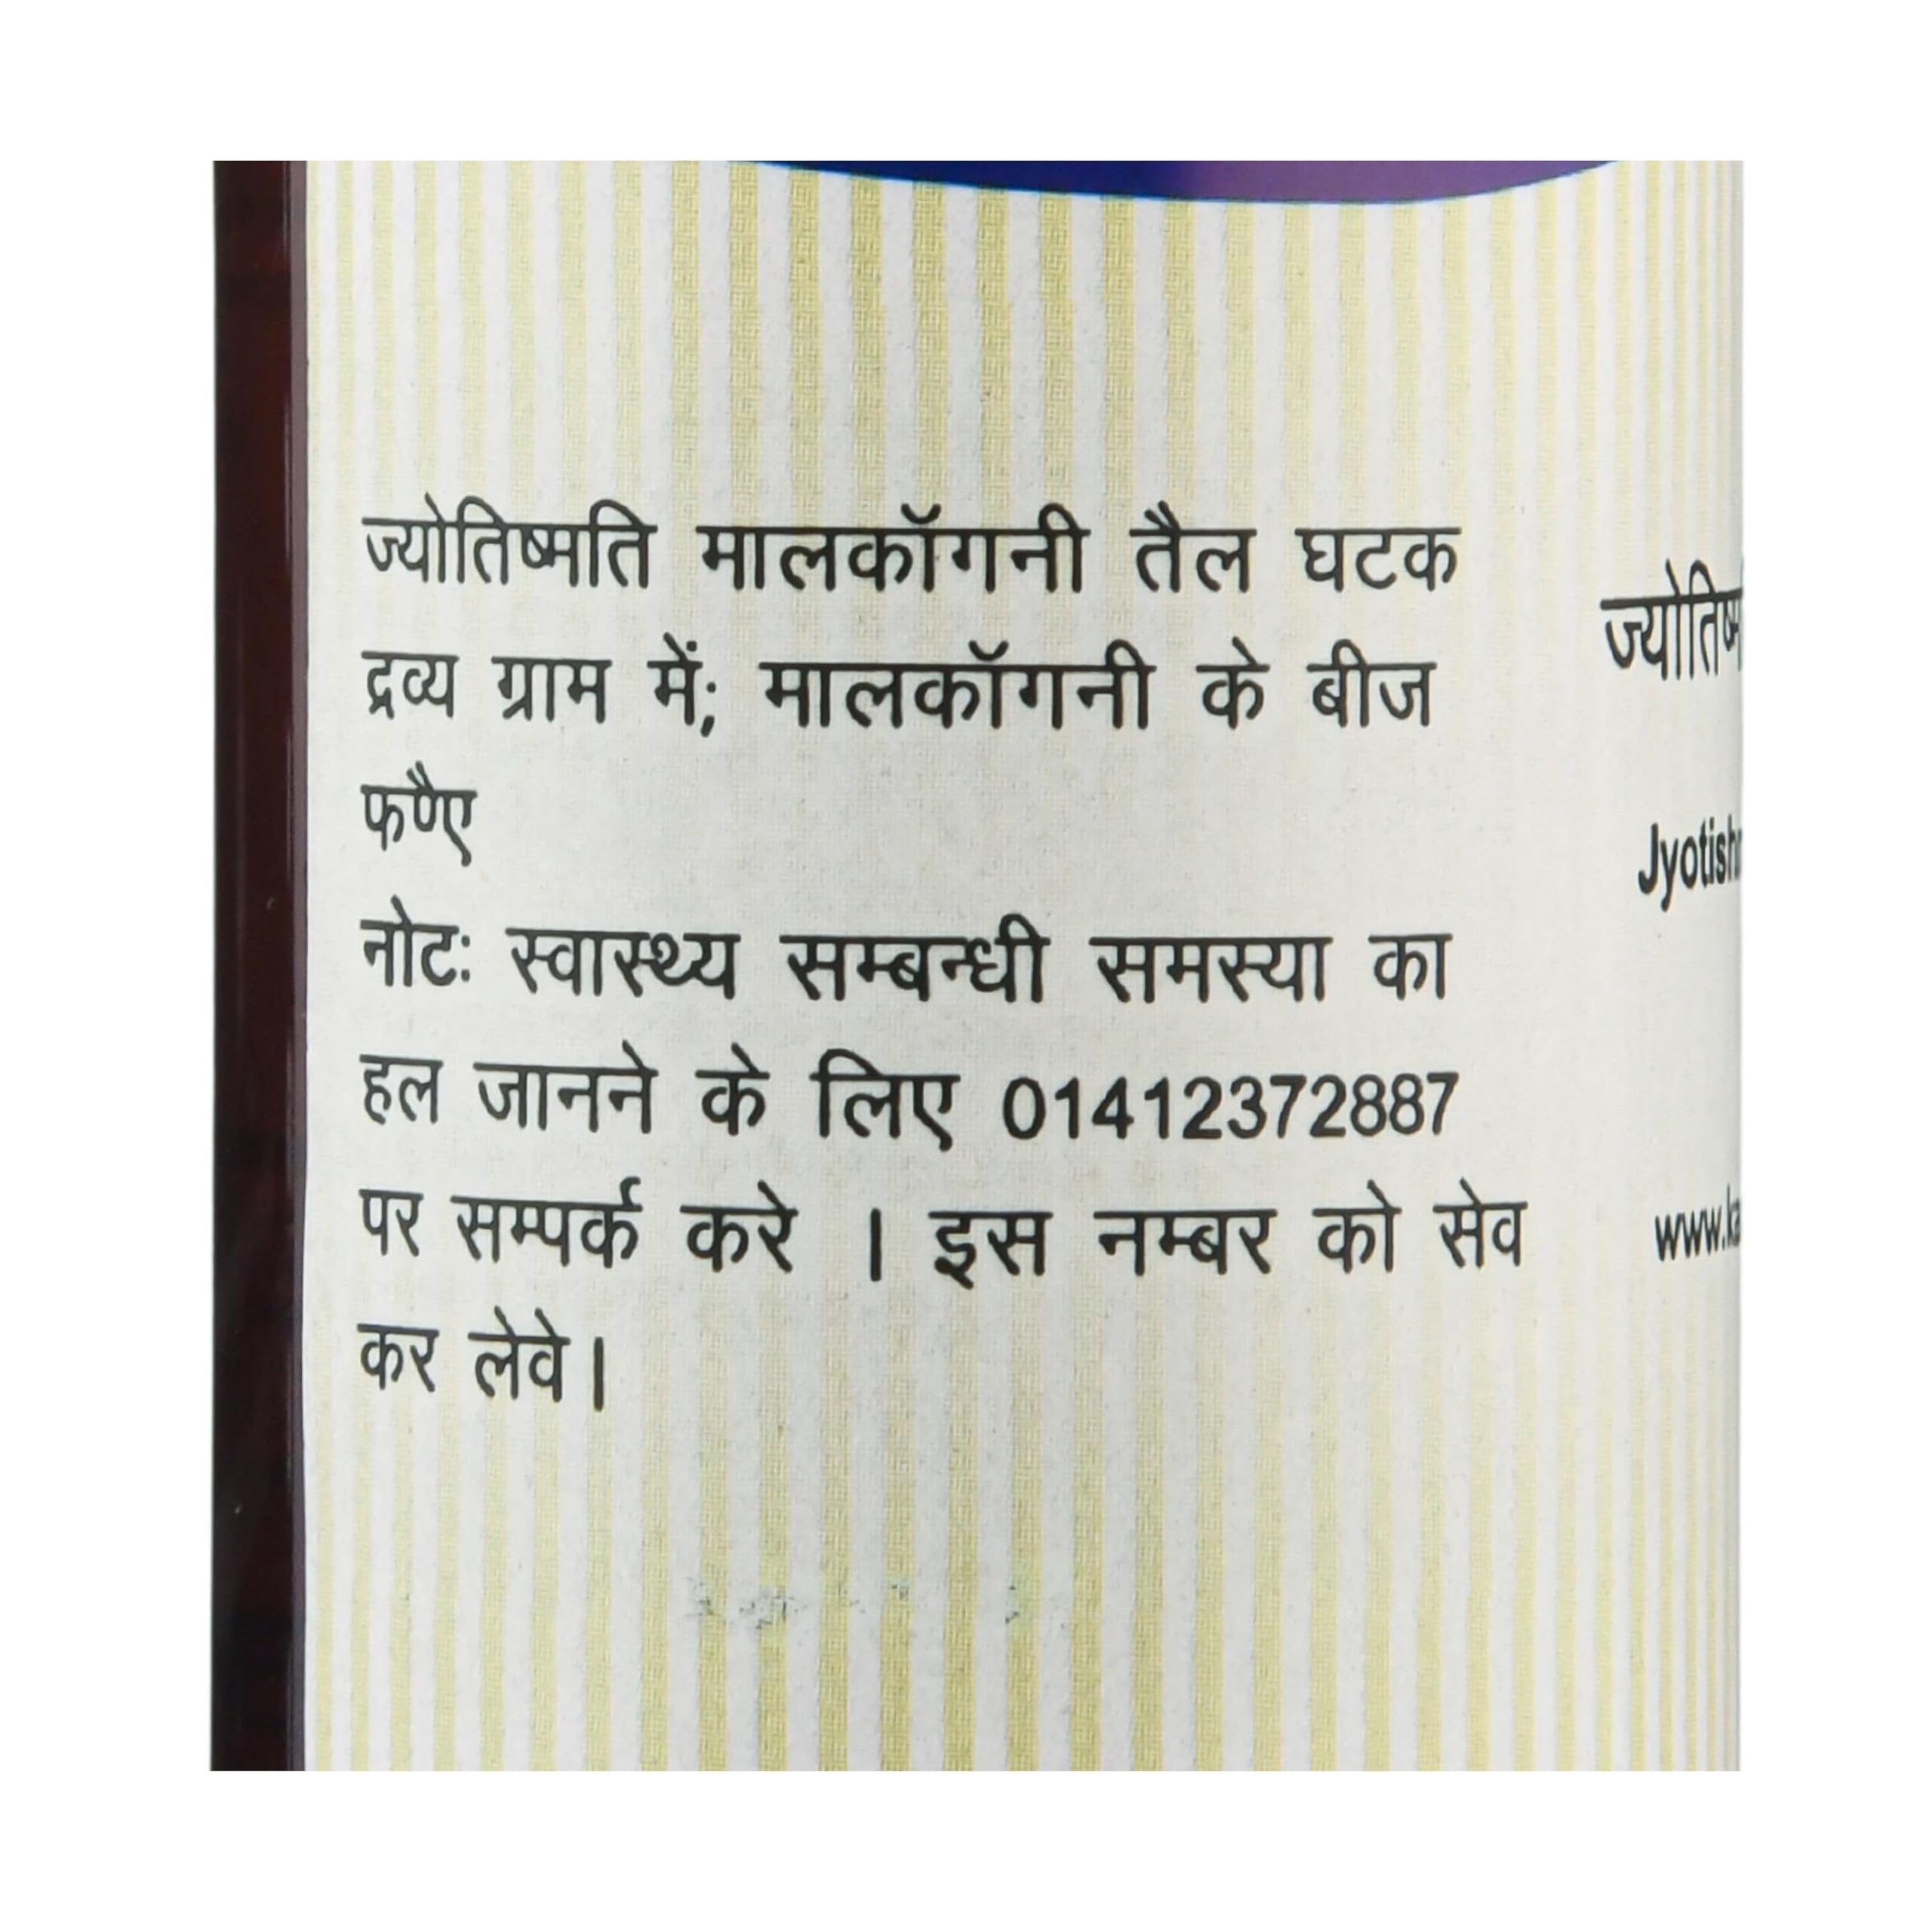 ज्योतिष्मति मालकॉगनी तैल घटक
द्रव्य ग्राम में; मालकॉगनी के बीज
फण्ैए
नोटः स्वास्थ्य सम्बन्धी समस्या का
हल जानने के लिए 01412372887
पर सम्पर्क करे । इस नम्बर को सेव
कर लेवे।